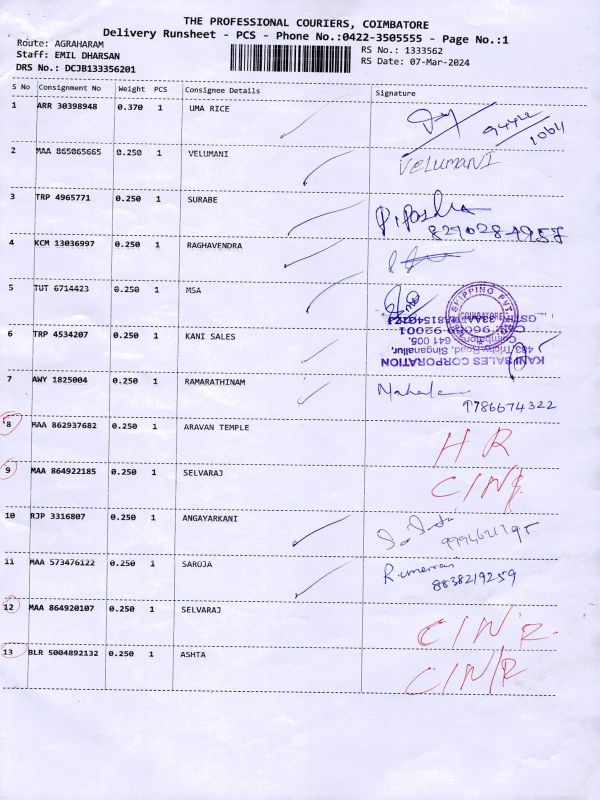 THE PROFESSIONAL COURIERS, COIMBATORE
Delivery Runsheet - PCS - Phone No.:0422-3505555 - Page No.:1
Route: AGRAHARAM
RS No.: 1333562
Staff: EMIL DHARSAN
RS Date: 07-Mar-2024
DRS No.: DCJB133356201
S No Consignment No Weight PCS Consignee Details Signature
1 ARR 30398948 0.370 1 UMA RICE
2 MAA 865065665 0.250 1 VELUMANI VELUMANI
3 TRP 4965771 0.250 1 SURABE
4 KCM 13036997 0.250 1 RAGHAVENDRA
5 TUT 6714423 0.250 1 MSA
6 TRP 4534207 0.250 1 KANI SALES
KANI SALES CORPORATION
Trichy Road, Singanallur,
Coimbatore 641 005.
SHIPPING PVT
COIMBATORE
7 AWY 1825004 0.250 1 RAMARATHINAM
9786674322
8 MAA 862937682 0.250 1 ARAVAN TEMPLE H R
9 MAA 864922185 0.250 1 SELVARAJ
10 RJP 3316807 0.250 1 ANGAYARKANI
11 MAA 573476122 0.250 1 SAROJA
8838219259
12 MAA 864920107 0.250 1 SELVARAJ C/N R
13 BLR 5004892132 0.250 1 ASHTA C/N/R